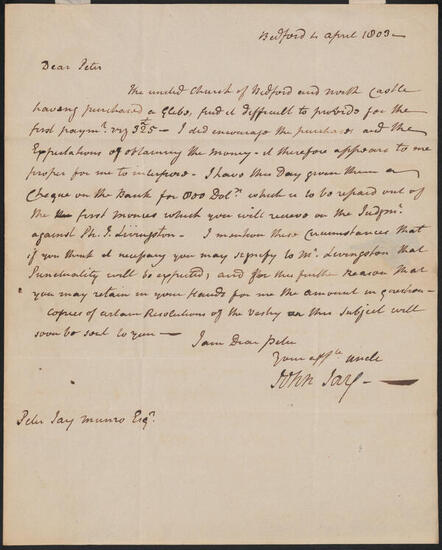 Bedford 4 April 1803 —
Dear Peter
The united Church of Bedford and north Castle
having purchased a Glebe, find it difficult to provide for the
first paymt. viz £325 — I did encourage the purchase and the
Expectations of obtaining the money — it therefore appears to me
proper for me to interpose — I have this Day given them a
Cheque on the Bank for 800 Dolrs. which is to be repaid out of
the first monies which you will receive on the Judgmt.
against Ph. J. Livingston — I mention these circumstances that
if you think it necessary you may signify to Mr. Livingston that
Punctuality will be expected; and for this further Reason that
you may retain in your Hands for me the amount in question —
copies of certain Resolutions of the Vestry on this Subject will
soon be sent to you —
I am Dear Peter
Your affte. uncle
John Jay —
Peter Jay Munro Esqr.